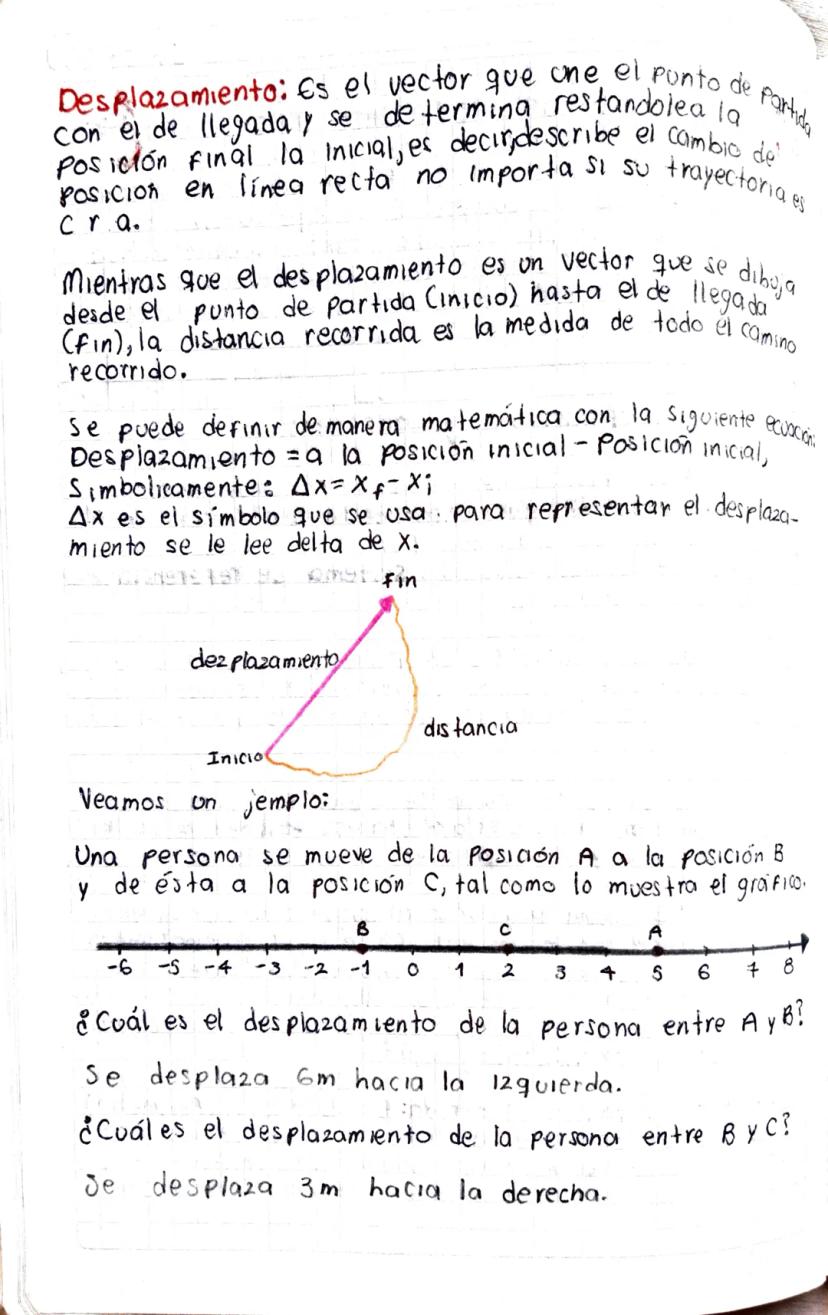 Desplazamiento: Es el vector que une el punto de partida
con el de llegada y se determina restandolea la
posición final la inicial, es decir, describe el cambio de
posicion en línea recta no importa si su trayectoria es
c r a.
Mientras que el desplazamiento es un vector que se dibuja
desde el punto de partida (inicio) hasta el de llegada
(fin), la distancia recorrida es la medida de todo el camino
recorrido.
Se puede definir de manera matemática con la siguiente ecuación:
Desplazamiento = a la posición inicial - Posición inicial,
Simbolicamente: Δx = xf - xi
Δx es el símbolo que se usa para representar el desplaza-
miento se le lee delta de x.
fin
dezplazamiento
distancia
Inicio
Veamos un jemplo:
Una persona se mueve de la posición A a la posición B
y de ésta a la posición C, tal como lo muestra el gráfico.
B C A
-6 -5 -4 -3 -2 -1 0 1 2 3 4 5 6 7 8
¿Cuál es el desplazamiento de la persona entre A y B?
Se desplaza 6m hacia la izquierda.
¿Cuál es el desplazamiento de la persona entre B y C?
Se desplaza 3m hacia la derecha.